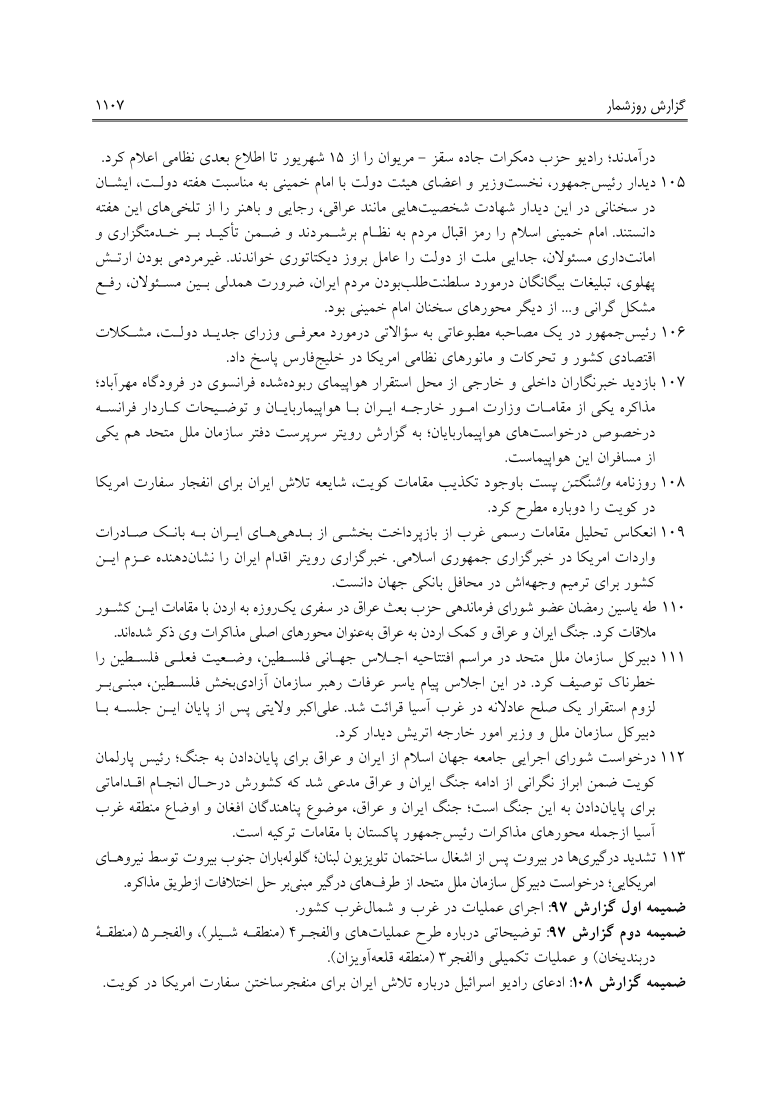 گزارش روزشمار ۱۱۰۷
درآمدند؛ رادیو حزب دمکرات جاده سقز – مریوان را از ۱۵ شهریور تا اطلاع بعدی نظامی اعلام کرد.
۱۰۵ دیدار رئیس‌جمهور، نخست‌وزیر و اعضای هیئت دولت با امام خمینی به مناسبت هفته دولت، ایشان
در سخنانی در این دیدار شهادت شخصیت‌هایی مانند عراقی، رجایی و باهنر را از تلخی‌های این هفته
دانستند. امام خمینی اسلام را رمز اقبال مردم به نظام برشمردند و ضمن تأکید بر خدمتگزاری و
امانت‌داری مسئولان، جدایی ملت از دولت را عامل بروز دیکتاتوری خواندند. غیرمردمی بودن ارتش
پهلوی، تبلیغات بیگانگان درمورد سلطنت‌طلب‌بودن مردم ایران، ضرورت همدلی بین مسئولان، رفع
مشکل گرانی و... از دیگر محورهای سخنان امام خمینی بود.
۱۰۶ رئیس‌جمهور در یک مصاحبه مطبوعاتی به سؤالاتی درمورد معرفی وزرای جدید دولت، مشکلات
اقتصادی کشور و تحرکات و مانورهای نظامی امریکا در خلیج‌فارس پاسخ داد.
۱۰۷ بازدید خبرنگاران داخلی و خارجی از محل استقرار هواپیمای ربوده‌شده فرانسوی در فرودگاه مهرآباد؛
مذاکره یکی از مقامات وزارت امور خارجه ایران با هواپیماربایان و توضیحات کاردار فرانسه
درخصوص درخواست‌های هواپیماربایان؛ به گزارش رویتر سرپرست دفتر سازمان ملل متحد هم یکی
از مسافران این هواپیماست.
۱۰۸ روزنامه واشنگتن پست باوجود تکذیب مقامات کویت، شایعه تلاش ایران برای انفجار سفارت امریکا
در کویت را دوباره مطرح کرد.
۱۰۹ انعکاس تحلیل مقامات رسمی غرب از بازپرداخت بخشی از بدهی‌های ایران به بانک صادرات
واردات امریکا در خبرگزاری جمهوری اسلامی. خبرگزاری رویتر اقدام ایران را نشان‌دهنده عزم این
کشور برای ترمیم وجهه‌اش در محافل بانکی جهان دانست.
۱۱۰ طه یاسین رمضان عضو شورای فرماندهی حزب بعث عراق در سفری یک‌روزه به اردن با مقامات این کشور
ملاقات کرد. جنگ ایران و عراق و کمک اردن به عراق به‌عنوان محورهای اصلی مذاکرات وی ذکر شده‌اند.
۱۱۱ دبیرکل سازمان ملل متحد در مراسم افتتاحیه اجلاس جهانی فلسطین، وضعیت فعلی فلسطین را
خطرناک توصیف کرد. در این اجلاس پیام یاسر عرفات رهبر سازمان آزادی‌بخش فلسطین، مبنی‌بر
لزوم استقرار یک صلح عادلانه در غرب آسیا قرائت شد. علی‌اکبر ولایتی پس از پایان این جلسه با
دبیرکل سازمان ملل و وزیر امور خارجه اتریش دیدار کرد.
۱۱۲ درخواست شورای اجرایی جامعه جهان اسلام از ایران و عراق برای پایان‌دادن به جنگ؛ رئیس پارلمان
کویت ضمن ابراز نگرانی از ادامه جنگ ایران و عراق مدعی شد که کشورش درحال انجام اقداماتی
برای پایان‌دادن به این جنگ است؛ جنگ ایران و عراق، موضوع پناهندگان افغان و اوضاع منطقه غرب
آسیا ازجمله محورهای مذاکرات رئیس‌جمهور پاکستان با مقامات ترکیه است.
۱۱۳ تشدید درگیری‌ها در بیروت پس از اشغال ساختمان تلویزیون لبنان؛ گلوله‌باران جنوب بیروت توسط نیروهای
امریکایی؛ درخواست دبیرکل سازمان ملل متحد از طرف‌های درگیر مبنی‌بر حل اختلافات ازطریق مذاکره.
ضمیمه اول گزارش ۹۷: اجرای عملیات در غرب و شمال‌غرب کشور.
ضمیمه دوم گزارش ۹۷: توضیحاتی درباره طرح عملیات‌های والفجر۴ (منطقه شیلر)، والفجر۵ (منطقهٔ
دربندیخان) و عملیات تکمیلی والفجر۳ (منطقه قلعه‌آویزان).
ضمیمه گزارش ۱۰۸: ادعای رادیو اسرائیل درباره تلاش ایران برای منفجرساختن سفارت امریکا در کویت.